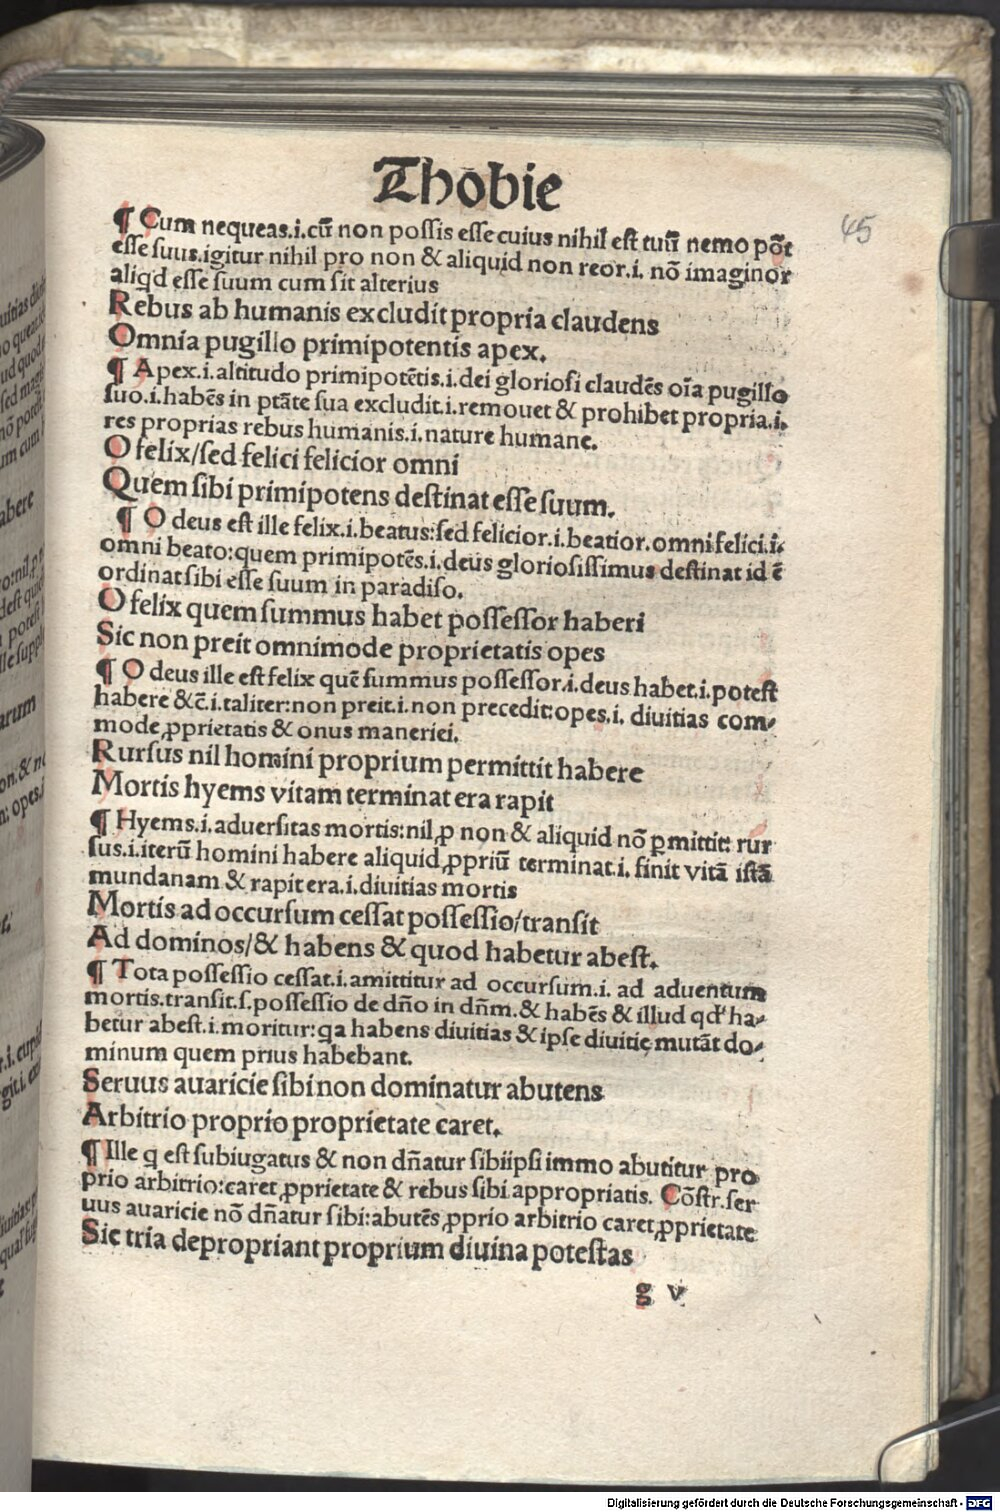 Thobie
45
¶ Cum nequeas.i.cū non possis esse cuius nihil est tuū nemo pōt
esse suus.igitur nihil pro non & aliquid non reor.i. nō imaginor
aliqd esse suum cum sit alterius
Rebus ab humanis excludit propria claudens
Omnia pugillo primipotentis apex.
¶ Apex.i.altitudo primipotētis.i.dei gloriosi claudēs oīa pugillo
suo.i.habēs in ptāte sua excludit.i.remouet & prohibet propria.i.
res proprias rebus humanis.i.nature humane.
O felix/sed felici felicior omni
Quem sibi primipotens destinat esse suum.
¶ O deus est ille felix.i.beatus:sed felicior.i.beatior.omni felici.i.
omni beato:quem primipotēs.i.deus gloriosissimus destinat id ē
ordinat sibi esse suum in paradiso.
O felix quem summus habet possessor haberi
Sic non preit omnimode proprietatis opes
¶ O deus ille est felix quē summus possessor.i.deus habet.i.potest
habere &c̄.i.taliter:non preit.i.non precedit:opes.i. diuitias com⸗
mode ꝓprietatis & onus maneriei.
Rursus nil homini proprium permittit habere
Mortis hyems vitam terminat era rapit
¶ Hyems.i.aduersitas mortis:nil ꝓ non & aliquid nō ꝑmittit: rur
sus.i.iterū homini habere aliquid ꝓpriū terminat.i. finit vitā istā
mundanam & rapit era.i.diuitias mortis
Mortis ad occursum cessat possessio/transit
Ad dominos/& habens & quod habetur abest.
¶ Tota possessio cessat.i.amittitur ad occursum.i. ad aduentum
mortis.transit.s.possessio de dn̄o in dn̄m.& habēs & illud qd' ha⸗
betur abest.i.moritur:qa habens diuitias & ipse diuitię mutāt do⸗
minum quem prius habebant.
Seruus auaricie sibi non dominatur abutens
Arbitrio proprio proprietate caret.
¶ Ille q est subiugatus & non dn̄atur sibiipsi immo abutitur pro
prio arbitrio:caret ꝓprietate & rebus sibi appropriatis. Cōstr.ser
uus auaricie nō dn̄atur sibi:abutēs ꝓprio arbitrio caret ꝓprietate
Sic tria depropriant proprium diuina potestas
g v
Digitalisierung gefördert durch die Deutsche Forschungsgemeinschaft - DFG